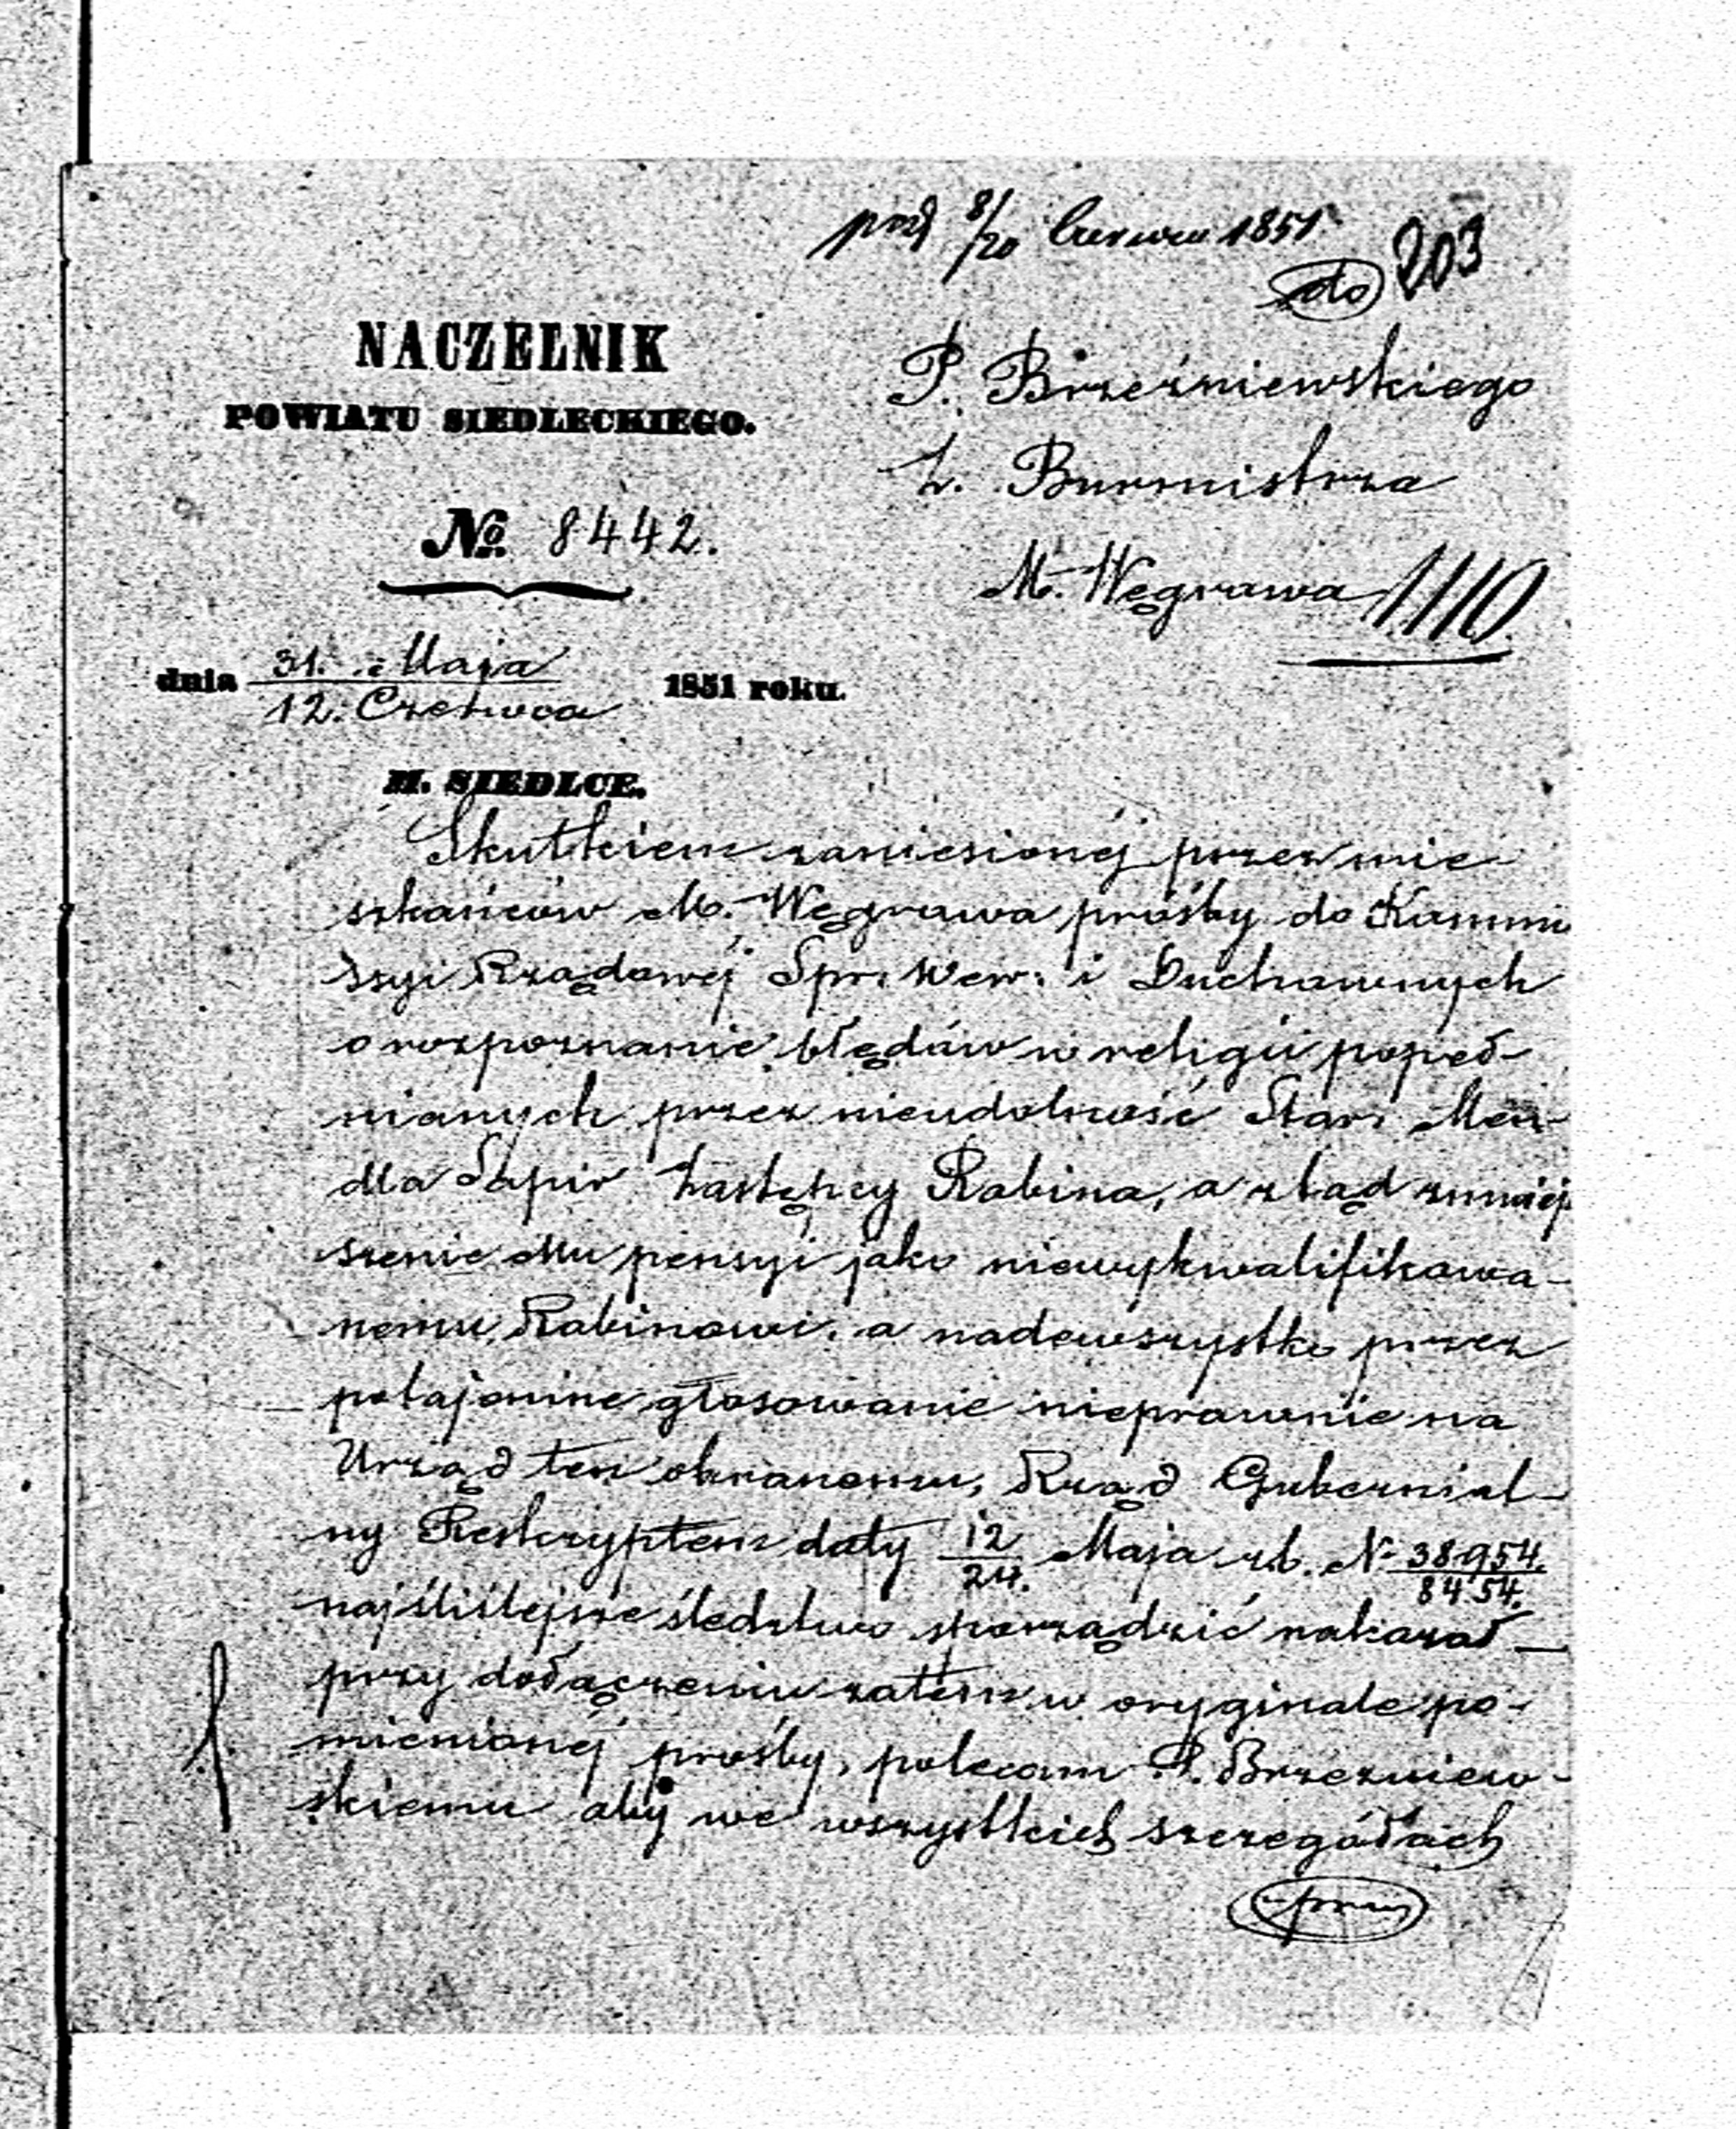 8/20 Czerwca 1851
203
do
NACZELNIK
POWIATU SIEDLECKIEGO.
P. Brzeźniewskiego
Z. Burmistrza
№ 8442.
M. Węgrowa 1110.
dnia 31. Maja / 12. Czerwca 1851 roku.
M. SIEDLCE.
Skutkiem zaniesionéj przez mie-
szkańców M. Węgrowa prośby do Kommi
ssyi Rządowéj Spr. Wew. i Duchownych
o rozpoznanie błędów w religii popeł-
nianych przez nieudolność Star. Men-
dla Sapir Zastępcy Rabina, a ztąd zmniej
szenie Mu pensyi jako niewykwalifikowa-
nemu Rabinowi, a nadewszystko przez
potajemne głosowanie nieprawnie na
Urząd ten obranemu, Rząd Gubernial-
ny Reskryptem daty 12/24. Maja r.b. N. 38954./8454.
najściślejsze śledztwo sporządzić nakazał —
przy dołączeniu zatem w oryginale po-
mienionéj prośby, polecam P. Brzezniew-
skiemu aby we wszystkich szczegółach